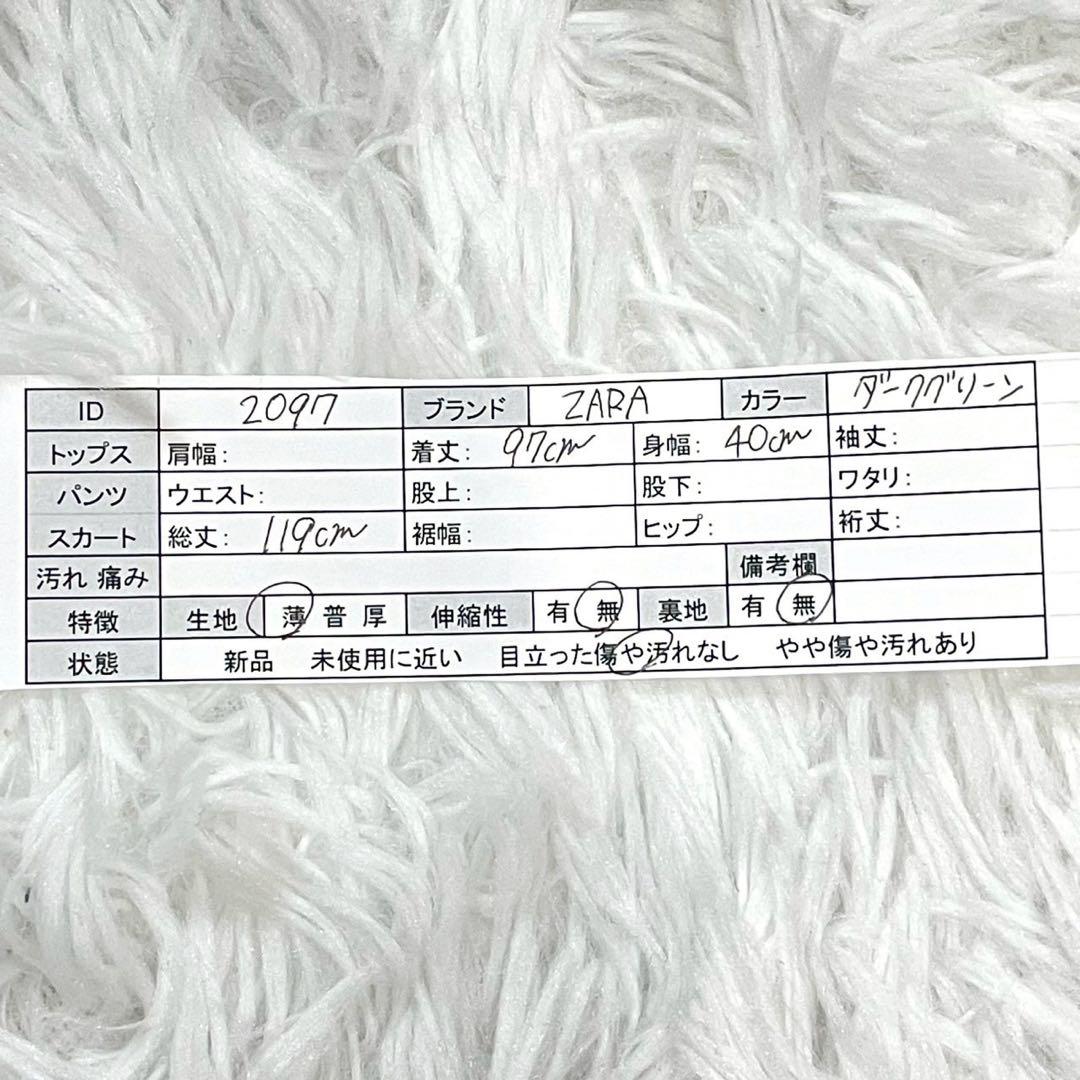 ID 2097 ブランド ZARA カラー ダークグリーン
トップス 肩幅: 着丈: 97cm 身幅: 40cm 袖丈:
パンツ ウエスト: 股上: 股下: ワタリ:
スカート 総丈: 119cm 裾幅: ヒップ: 裄丈:
汚れ 痛み 備考欄
特徴 生地 薄 普 厚 伸縮性 有 無 裏地 有 無
状態 新品 未使用に近い 目立った傷や汚れなし やや傷や汚れあり